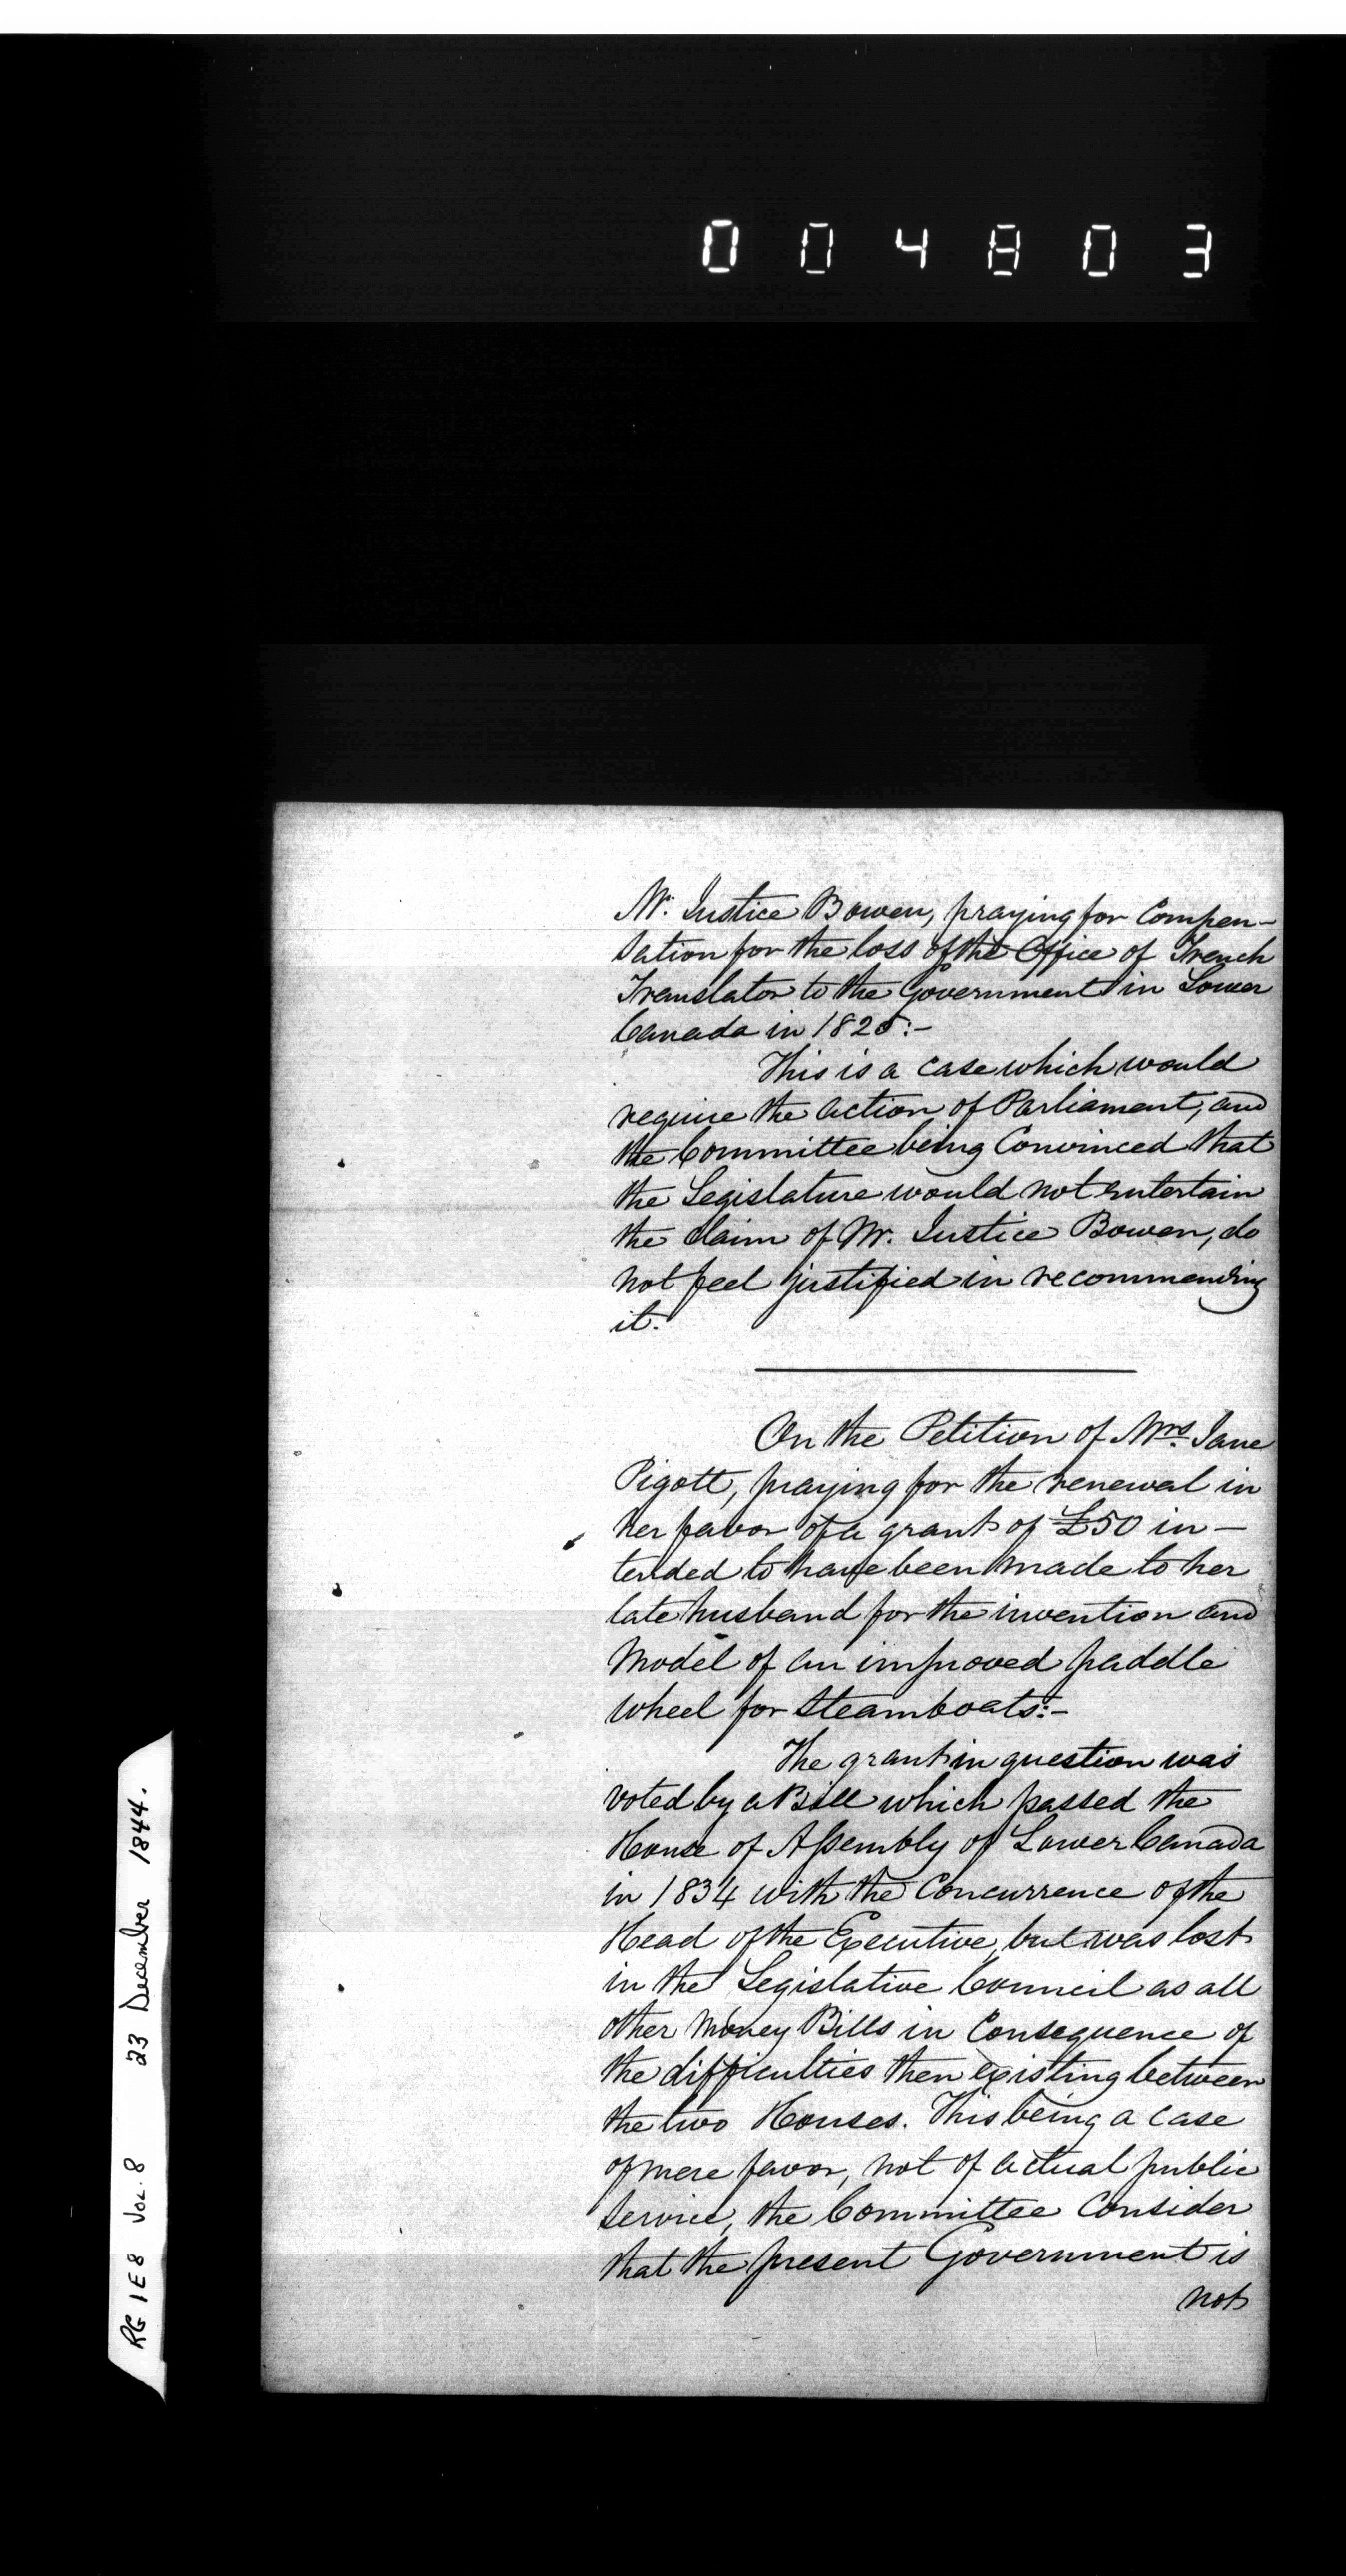 004803
Mr. Justice Bowen, praying for Compen-
sation for the loss of the Office of French
Translator to the Government in Lower
Canada in 1825:-
This is a case which would
require the action of Parliament, and
the Committee being Convinced that
the Legislature would not entertain
the claim of Mr. Justice Bowen, do
not feel justified in recommending
it.
On the Petition of Mrs. Jane
Pigott, praying for the renewal in
her favor of a grant of £50 in-
tended to have been made to her
late husband for the invention and
Model of an improved paddle
wheel for steamboats:-
The grant in question was
voted by a Bill which passed the
House of Assembly of Lower Canada
in 1834 with the Concurrence of the
Head of the Executive, but was lost
in the Legislative Council as all
other Money Bills in Consequence of
the difficulties then existing between
the two Houses. This being a case
of mere favor, not of actual public
service, the Committee Consider
that the present Government is
not
RG 1 E 8 Vol. 8 23 December 1844.